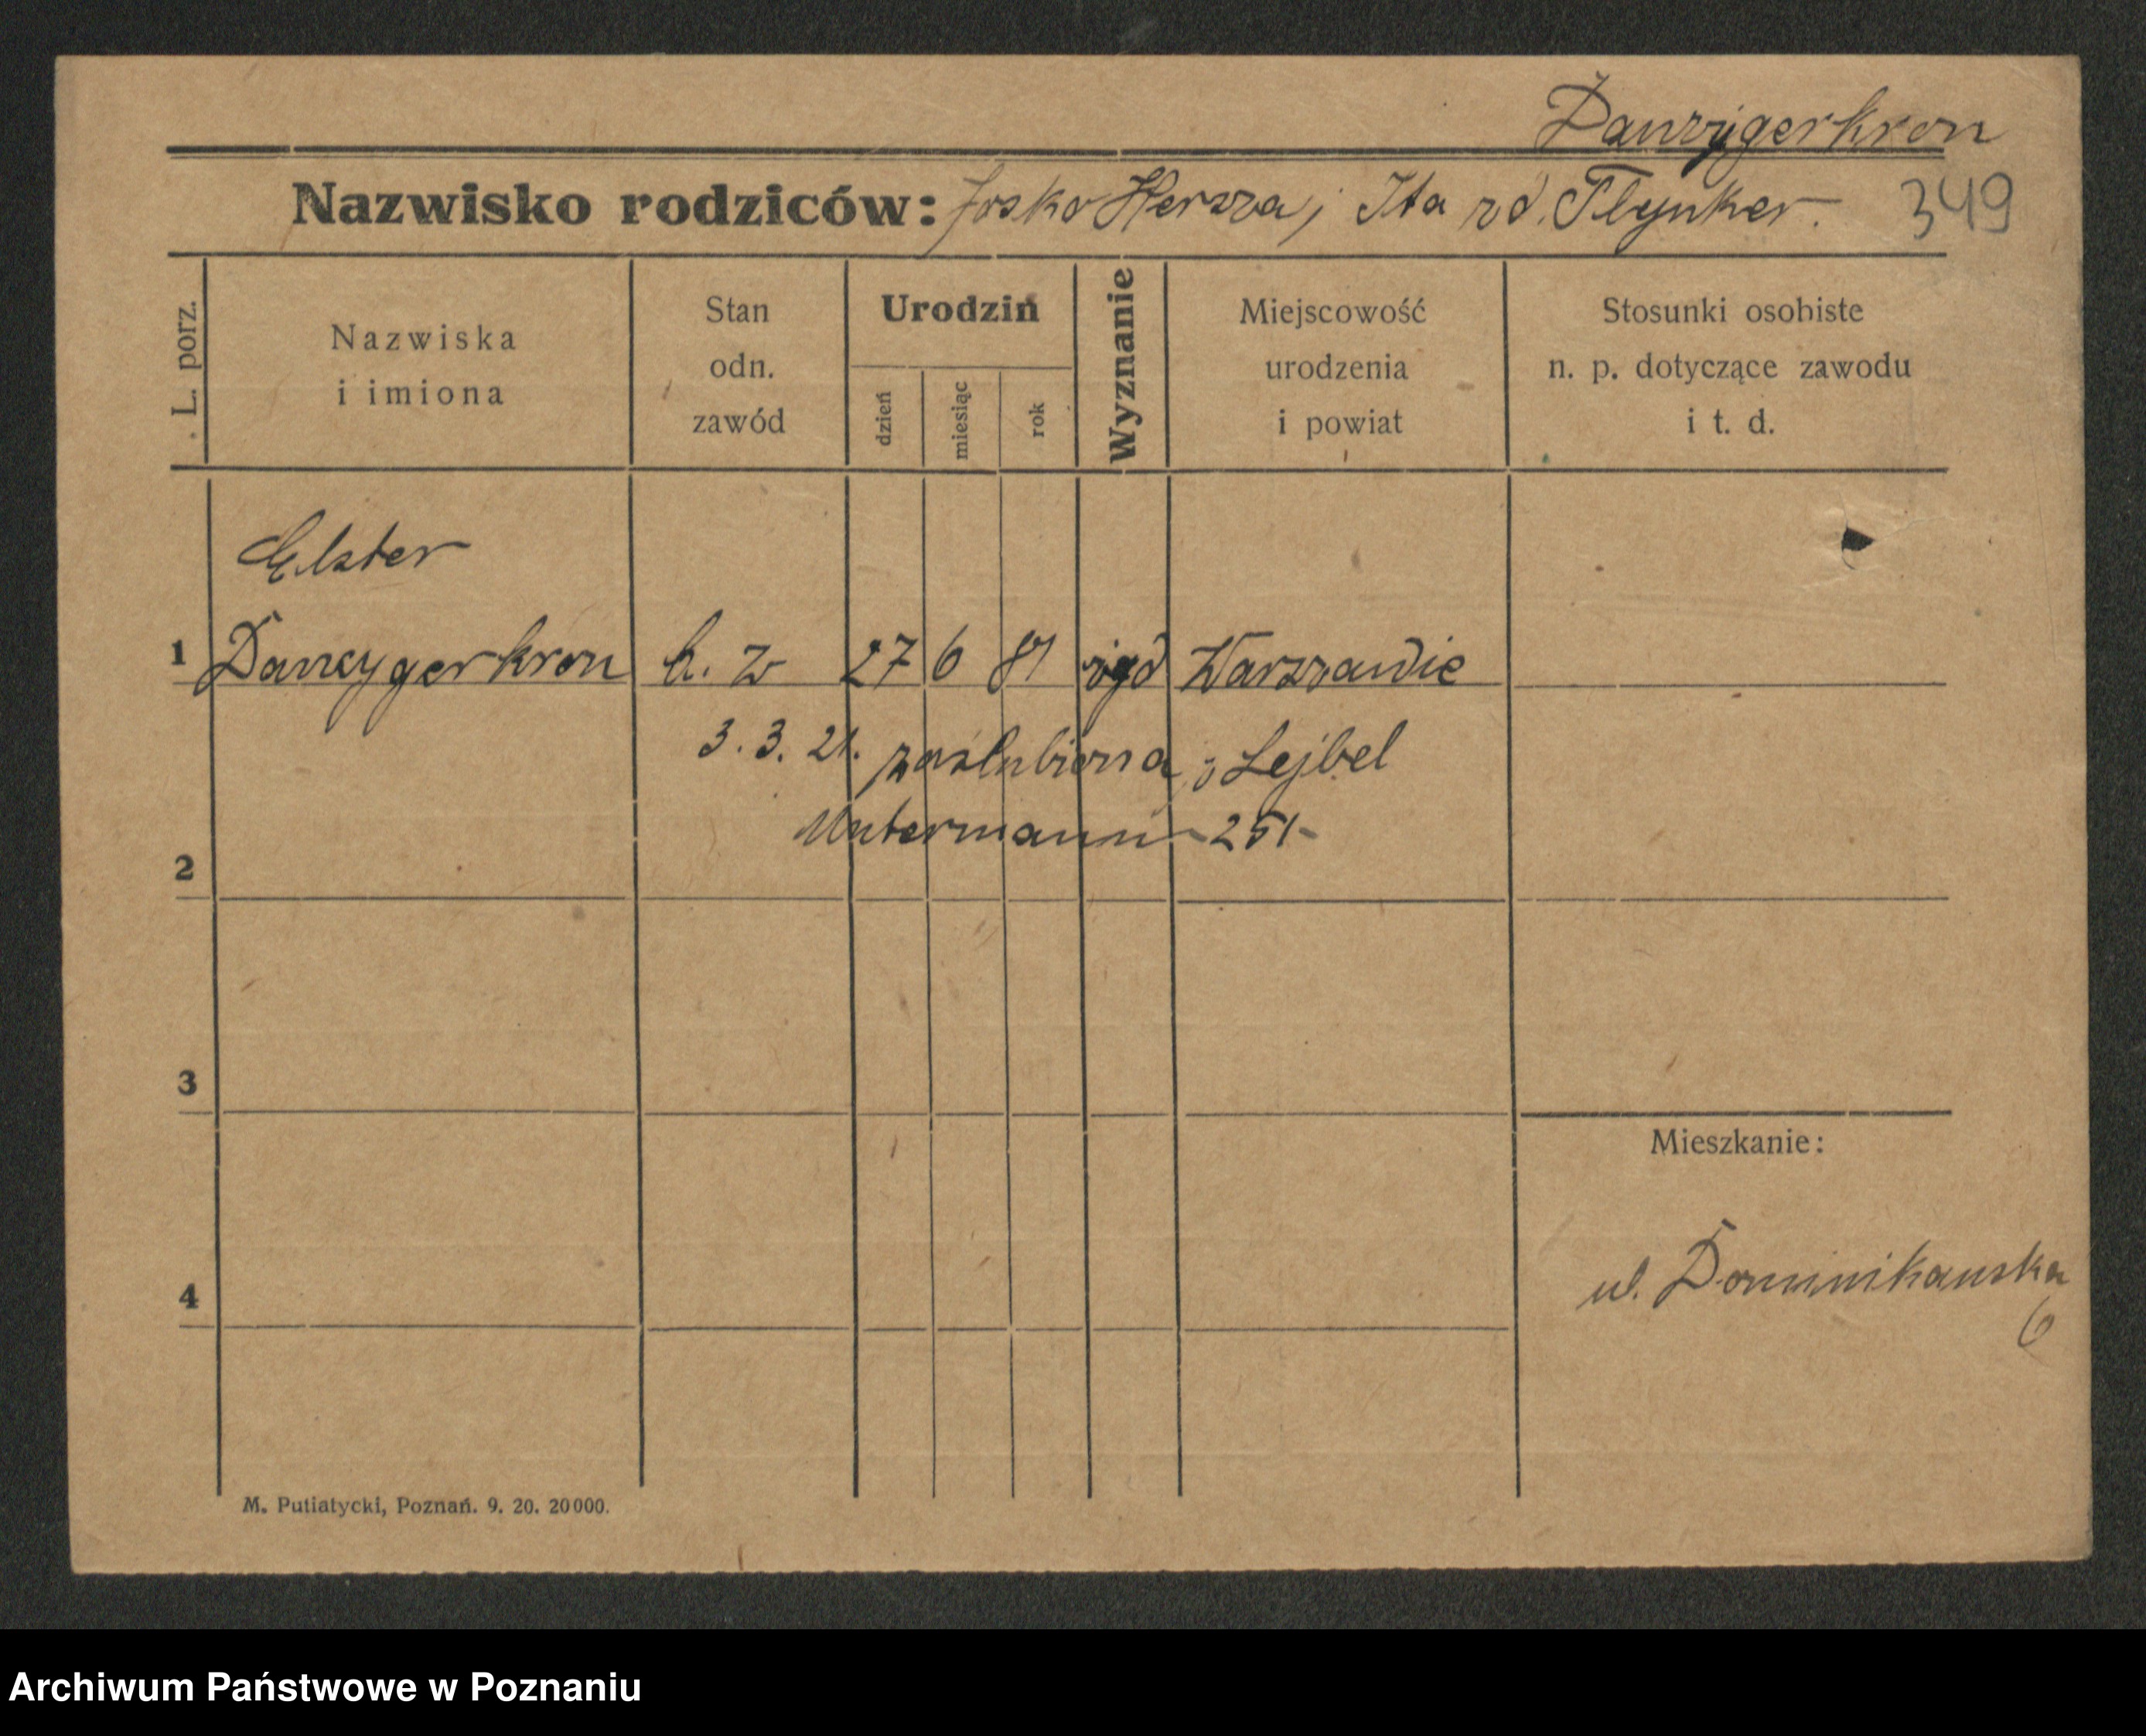 Danzigerkron
Nazwisko rodziców: Josko Hersza, Ita rd. Flynker. 349
L. porz.
Nazwiska
i imiona
Stan
odn.
zawód
Urodzin
dzień
miesiąc
rok
Wyznanie
Miejscowość
urodzenia
i powiat
Stosunki osobiste
n. p. dotyczące zawodu
i t. d.
Elster
1 Dancygerkron h. w 27 6 87 żyd Warszawie
3. 3. 21. zaślubiona Lejbel
Untermann - 251-
2
3
Mieszkanie:
4
ul. Dominikanska
6
M. Putiatycki, Poznań. 9. 20. 20000.
Archiwum Państwowe w Poznaniu